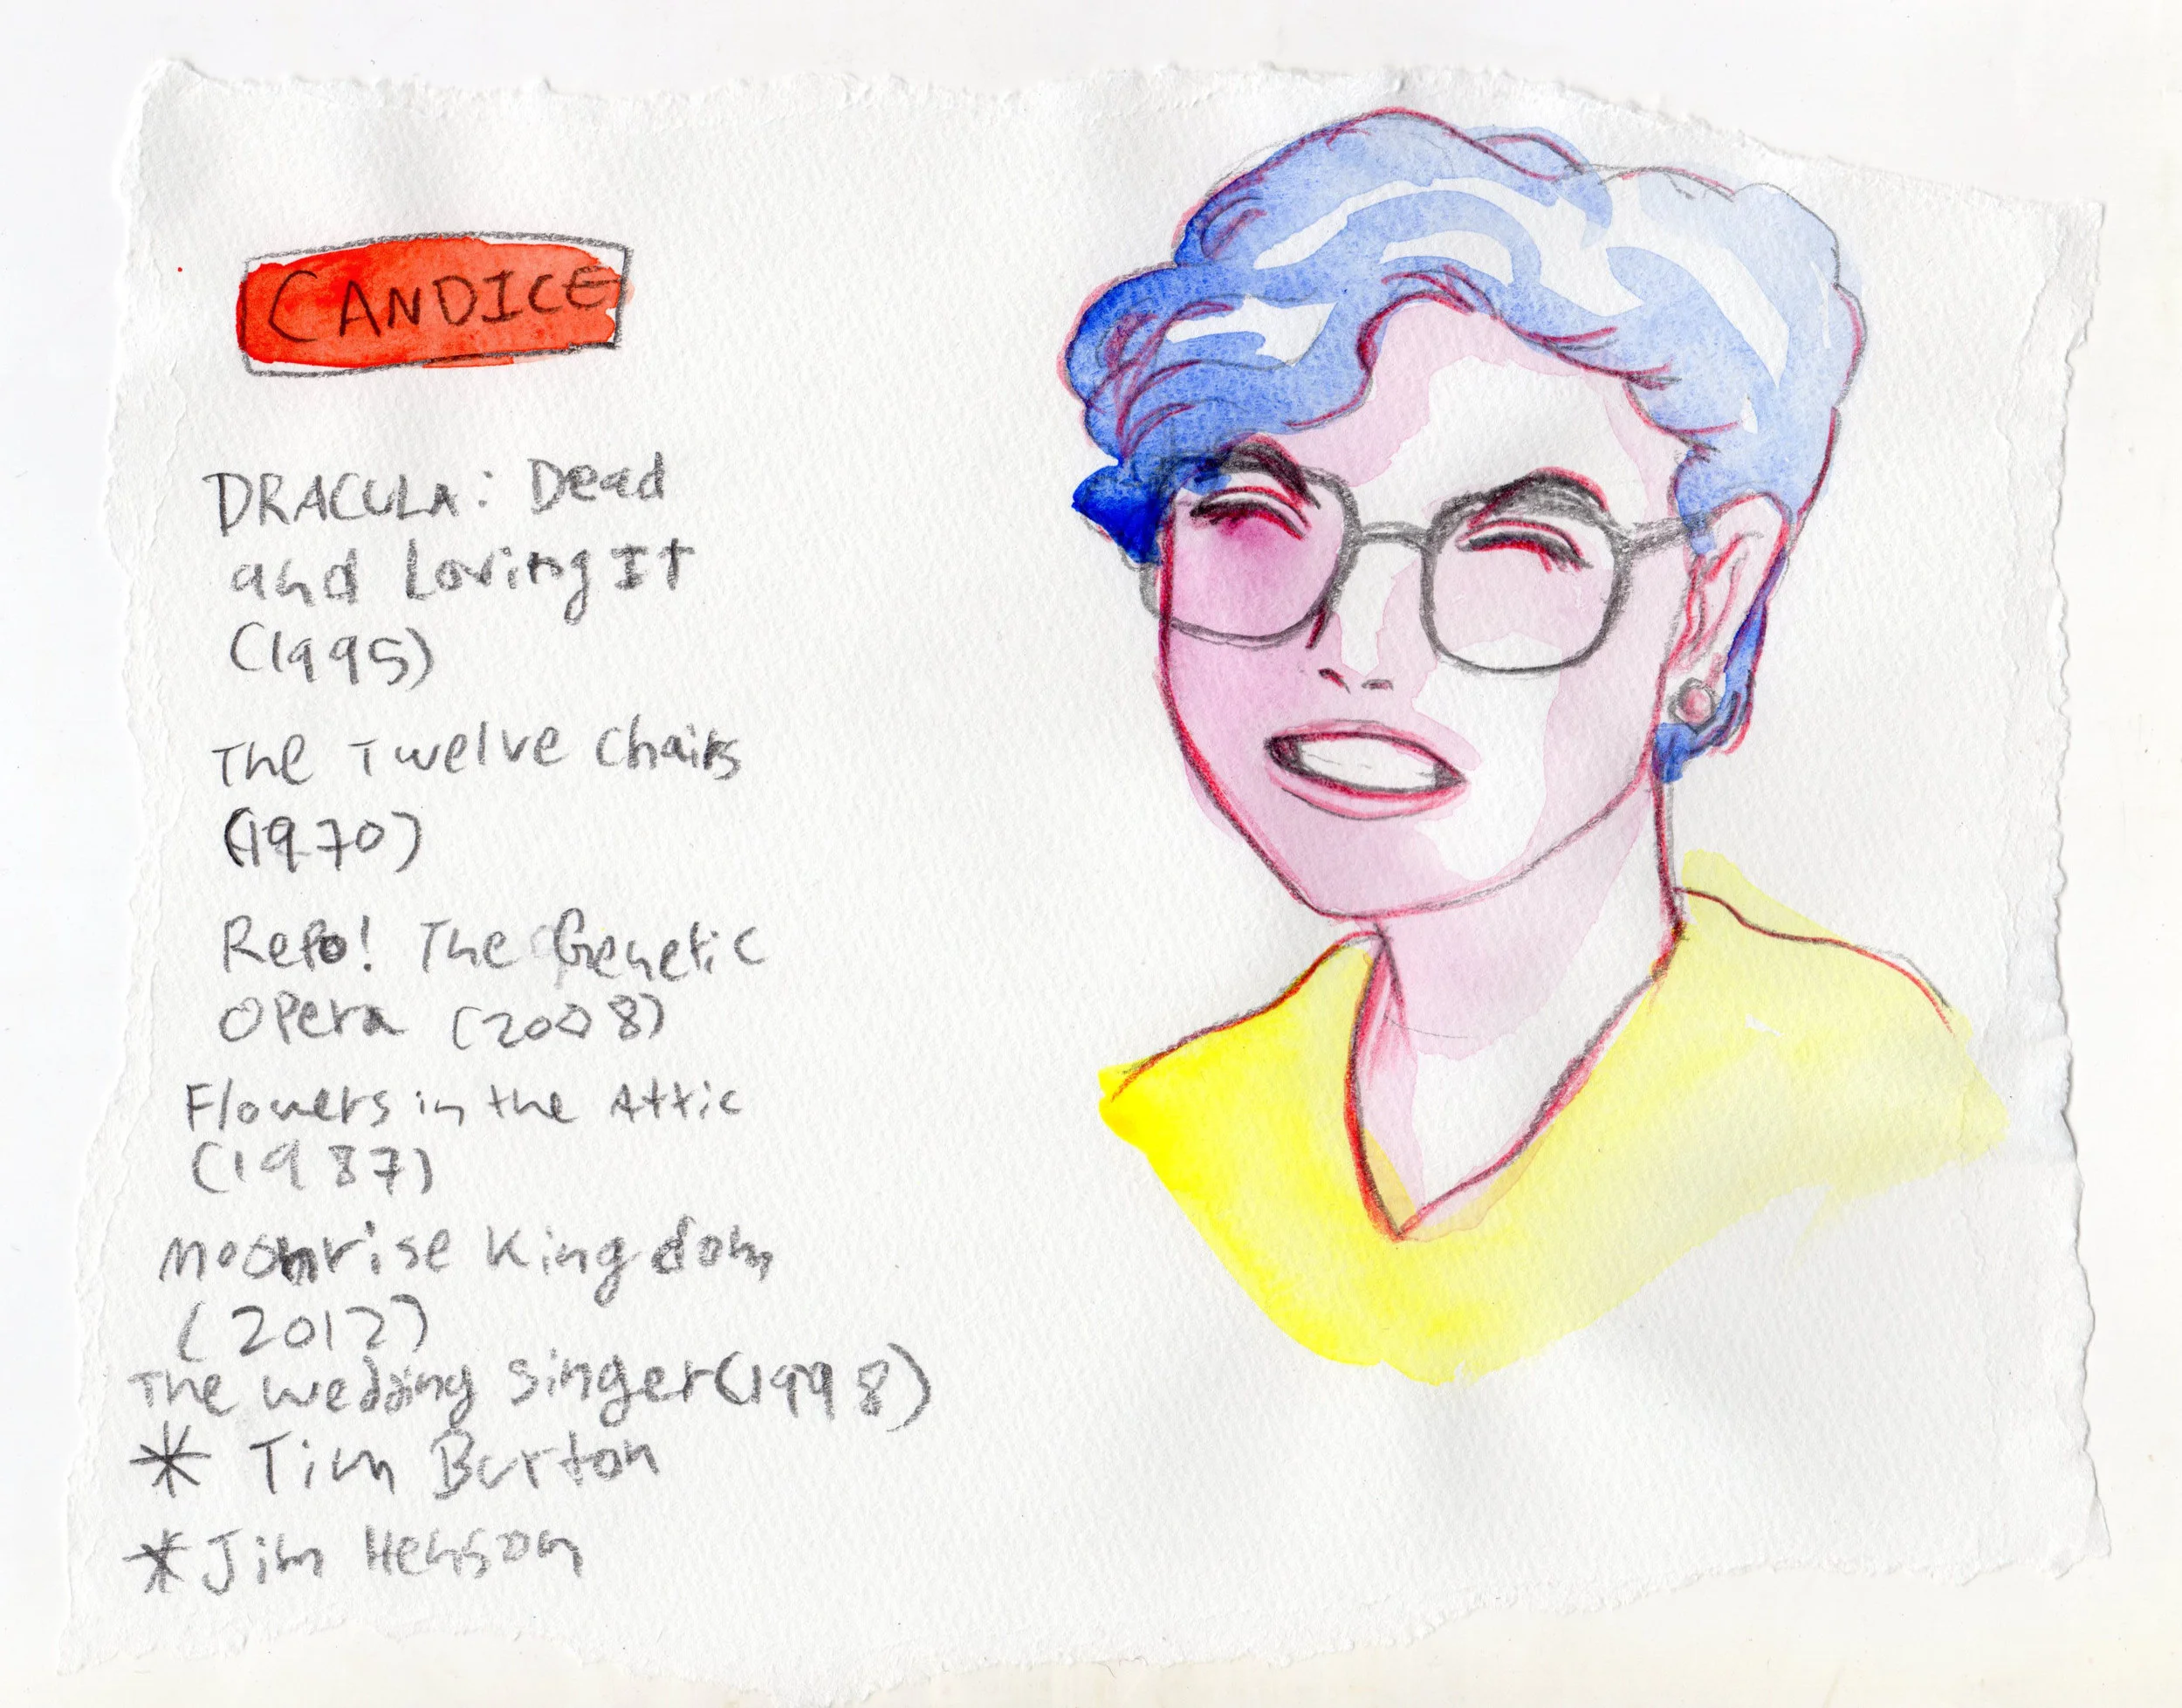 CANDICE
DRACULA: Dead
and Loving It
(1995)
The Twelve Chairs
(1970)
Repo! The Genetic
Opera (2008)
Flowers in the Attic
(1987)
Moonrise Kingdom
(2012)
The Wedding Singer (1998)
* Tim Burton
* Jim Henson